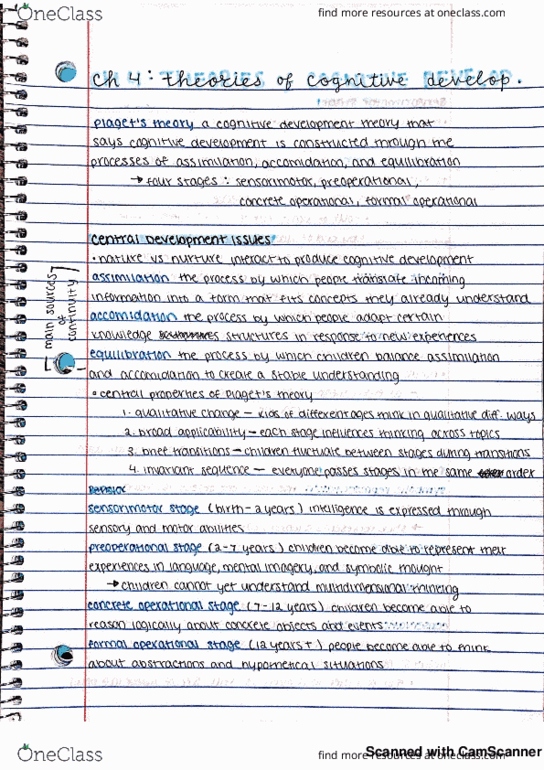 OneClass
find more resources at oneclass.com
Ch 4: theories of cognitive develop.
piaget's theory a cognitive development theory that
says cognitive development is constructed through the
processes of assimilation, accomidation, and equilibration
→ four stages: sensorimotor, preoperational,
concrete operational, formal operational
central development issues
• nature vs nurture interact to produce cognitive development
assimilation the process by which people translate incoming
information into a form that fits concepts they already understand
accomidation the process by which people adapt certain
knowledge structures in response to new experiences
equilibration the process by which children balance assimilation
and accomidation to create a stable understanding
main sources
of
continuity
• central properties of Piaget's theory
1. qualitative change – kids of different ages think in qualitative diff. ways
2. broad applicability – each stage influences thinking across topics
3. brief transitions – children fluctuate between stages during transitions
4. invariant sequence – everyone passes stages in the same order
sensorimotor stage (birth - 2 years) intelligence is expressed through
sensory and motor abilities
preoperational stage (2-7 years) children become able to represent their
experiences in language, mental imagery, and symbolic thought
→ children cannot yet understand multidimensional thinking
concrete operational stage (7-12 years) children become able to
reason logically about concrete objects and events
formal operational stage (12 years +) people become able to think
about abstractions and hypothetical situations
OneClass
find more resources at oneclass.com
Scanned with CamScanner